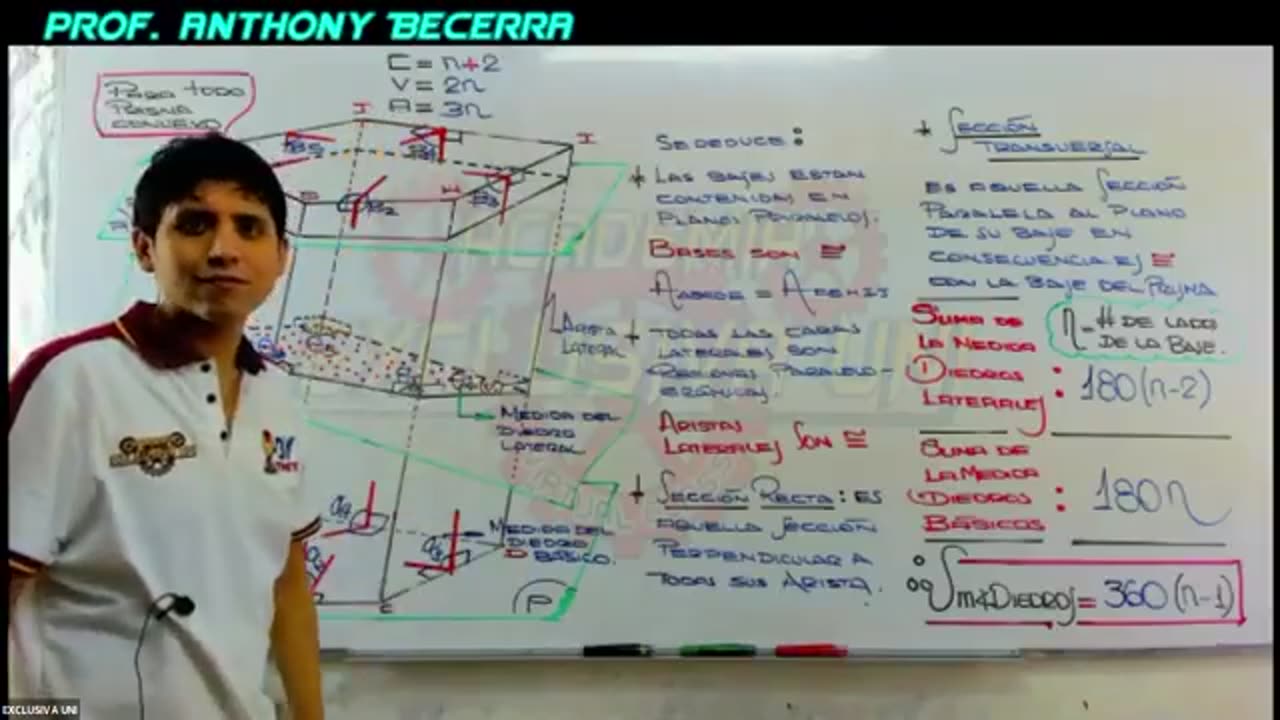 PROF. ANTHONY BECERRA
PARA TODO
PRISMA
CONVEXO
C = n+2
V = 2n
A = 3n
J
I
H
B
ARISTA
LATERAL
MEDIDA DEL
DIEDRO
LATERAL
MEDIDA DEL
DIEDRO
BÁSICO.
P
C
SE DEDUCE:
* LAS BASES ESTAN
CONTENIDAS EN
PLANOS PARALELOS.
BASES SON ≅
* TODAS LAS CARAS
LATERALES SON
REGIONES PARALELO-
GRÁMICAS.
ARISTAS
LATERALES SON ≅
* SECCIÓN RECTA: ES
AQUELLA SECCIÓN
PERPENDICULAR A
TODAS SUS ARISTA.
* SECCIÓN
TRANSVERSAL
ES AQUELLA SECCIÓN
PARALELA AL PLANO
DE SU BASE EN
CONSECUENCIA ES ≅
CON LA BASE DEL PRISMA
n = # DE LADO
DE LA BASE.
SUMA DE
LA MEDIDA
DIEDROS
LATERALES : 180(n-2)
SUMA DE
LA MEDIDA
DIEDROS
BÁSICOS : 180n
∴ ∫m∢DIEDROS = 360(n-1)
EXCLUSIVA UNI